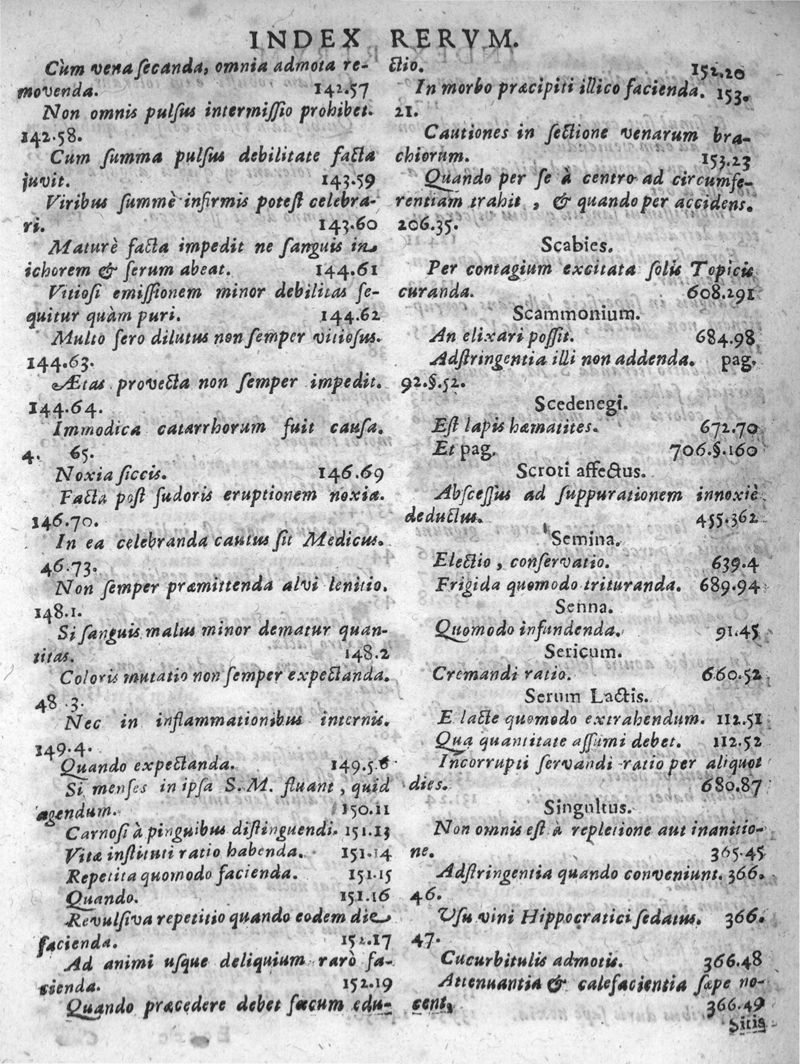 INDEX RERVM.
Cùm vena secanda, omnia admota re-
movenda. 142.57
Non omnis pulsus intermissio prohibet.
142.58.
Cum summa pulsus debilitate facta
juvit. 143.59
Viribus summè infirmis potest celebra-
ri. 143.60
Maturè facta impedit ne sanguis in
ichorem & serum abeat. 144.61
Vitiosi emissionem minor debilitas se-
quitur quàm puri. 144.62
Multo sero dilutus non semper vitiosus.
144.63.
Ætas provecta non semper impedit.
144.64.
Immodica catarrhorum fuit causa.
4. 65.
Noxia siccis. 146.69
Facta post sudoris eruptionem noxia.
146.70.
In ea celebranda cautus sit Medicus.
46.73.
Non semper præmittenda alvi lenitio.
148.1.
Si sanguis malus minor dematur quan-
titas. 148.2
Coloris mutatio non semper expectanda.
48.3.
Nec in inflammationibus internis.
149.4.
Quando expectanda. 149.5.6
Si menses in ipsa S. M. fluant, quid
agendum. 150.11
Carnosi à pinguibus distinguendi. 151.13
Vitæ instituti ratio habenda. 151.14
Repetita quomodo facienda. 151.15
Quando. 151.16
Revulsiva repetitio quando eodem die
facienda. 152.17
Ad animi usque deliquium rarò fa-
cienda. 152.19
Quando præcedere debet fæcum edu-
ctio. 152.20
In morbo præcipiti illico facienda. 153.
21.
Cautiones in sectione venarum bra-
chiorum. 153.23
Quando per se à centro ad circumfe-
rentiam trahit, & quando per accidens.
206.35.
Scabies.
Per contagium excitata solis Topicis
curanda. 608.291
Scammonium.
An elixari possit. 684.98
Adstringentia illi non addenda. pag.
92.§.52.
Scedenegi.
Est lapis hæmatites. 672.70
Et pag. 706.§.160
Scroti affectus.
Abscessus ad suppurationem innoxiè
deductus. 455.362
Semina.
Electio, conservatio. 639.4
Frigida quomodo trituranda. 689.94
Senna.
Quomodo infundenda. 91.45
Sericum.
Cremandi ratio. 660.52
Serum Lactis.
E lacte quomodo extrahendum. 112.51
Qua quantitate assumi debet. 112.52
Incorrupti servandi ratio per aliquot
dies. 680.87
Singultus.
Non omnis est à repletione aut inanitio-
ne. 365.45
Adstringentia quando conveniunt. 366.
46.
Usu vini Hippocratici sedatus. 366.
47.
Cucurbitulis admotis. 366.48
Attenuantia & calefacientia sæpe no-
cent. 366.49
Sitis